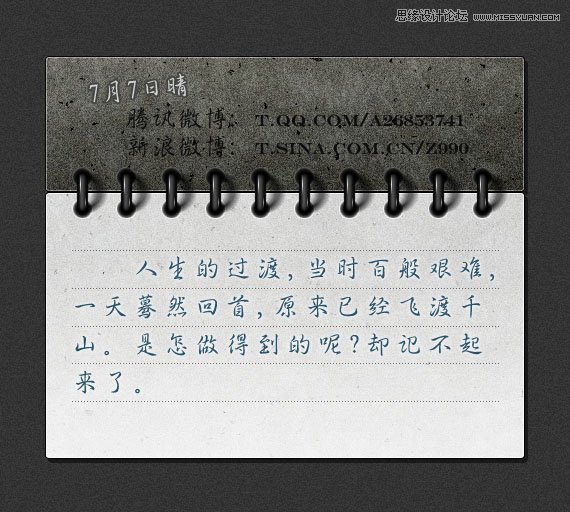 思缘设计论坛 WWW.MISSYUAN.COM
7月7日晴
腾讯微博：T.QQ.COM/A26853741
新浪微博：T.SINA.COM.CN/Z990
人生的过渡，当时百般艰难，
一天蓦然回首，原来已经飞渡千
山。是怎做得到的呢？却记不起
来了。